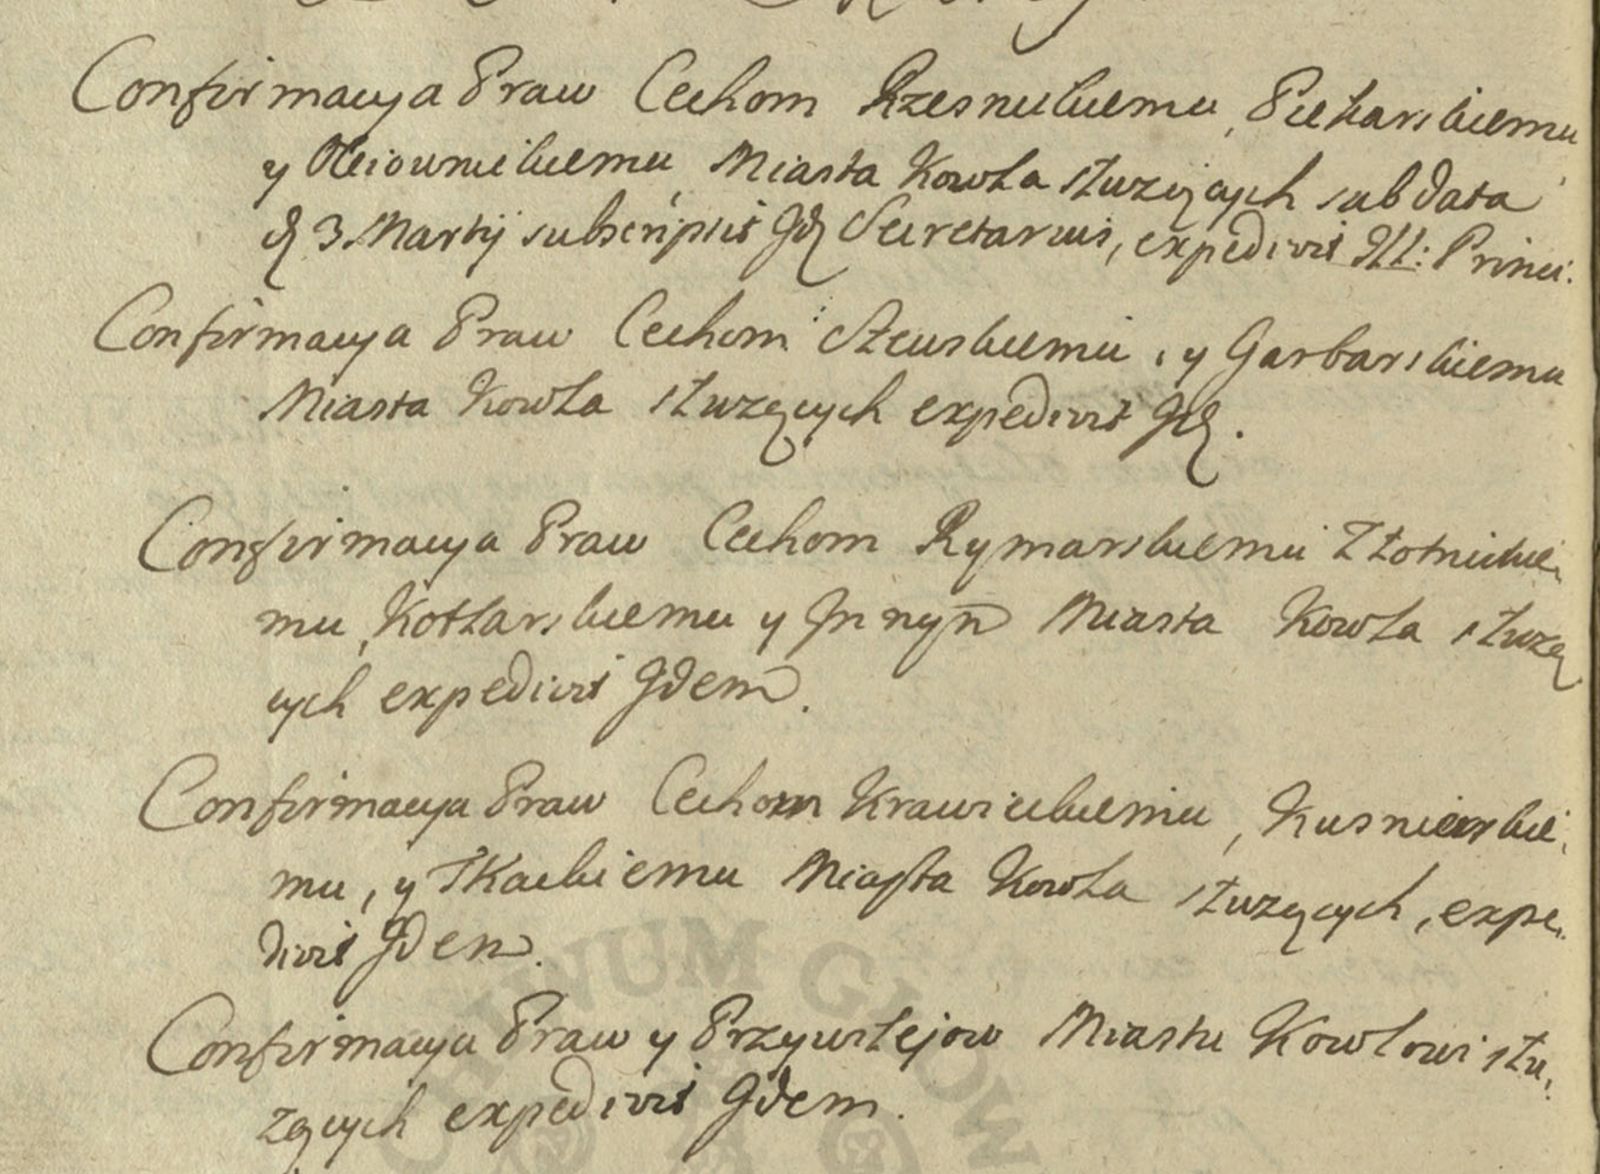 Confirmacya Praw Cechom Rzesnickiemu, Piekarskiemu
y Oleiownickiemu, Miasta Kowla służących sub data
3 Martij subscriptis Secretarius, expedivit Ill: Princ:
Confirmacya Praw Cechom Szewskiemu, y Garbarskiemu
Miasta Kowla służących expedivit Id.
Confirmacya Praw Cechom Rymarskiemu Złotnickie
mu, Kotlarskiemu y Innym Miasta Kowla służą
cych expedivit Idem.
Confirmacya Praw Cechom Krawieckiemu, Kusnierskie
mu, y Tkackiemu Miasta Kowla służących, expe
divit Idem.
Confirmacya Praw y Przywilejow Miastu Kowlowi słu
żących expedivit Idem.